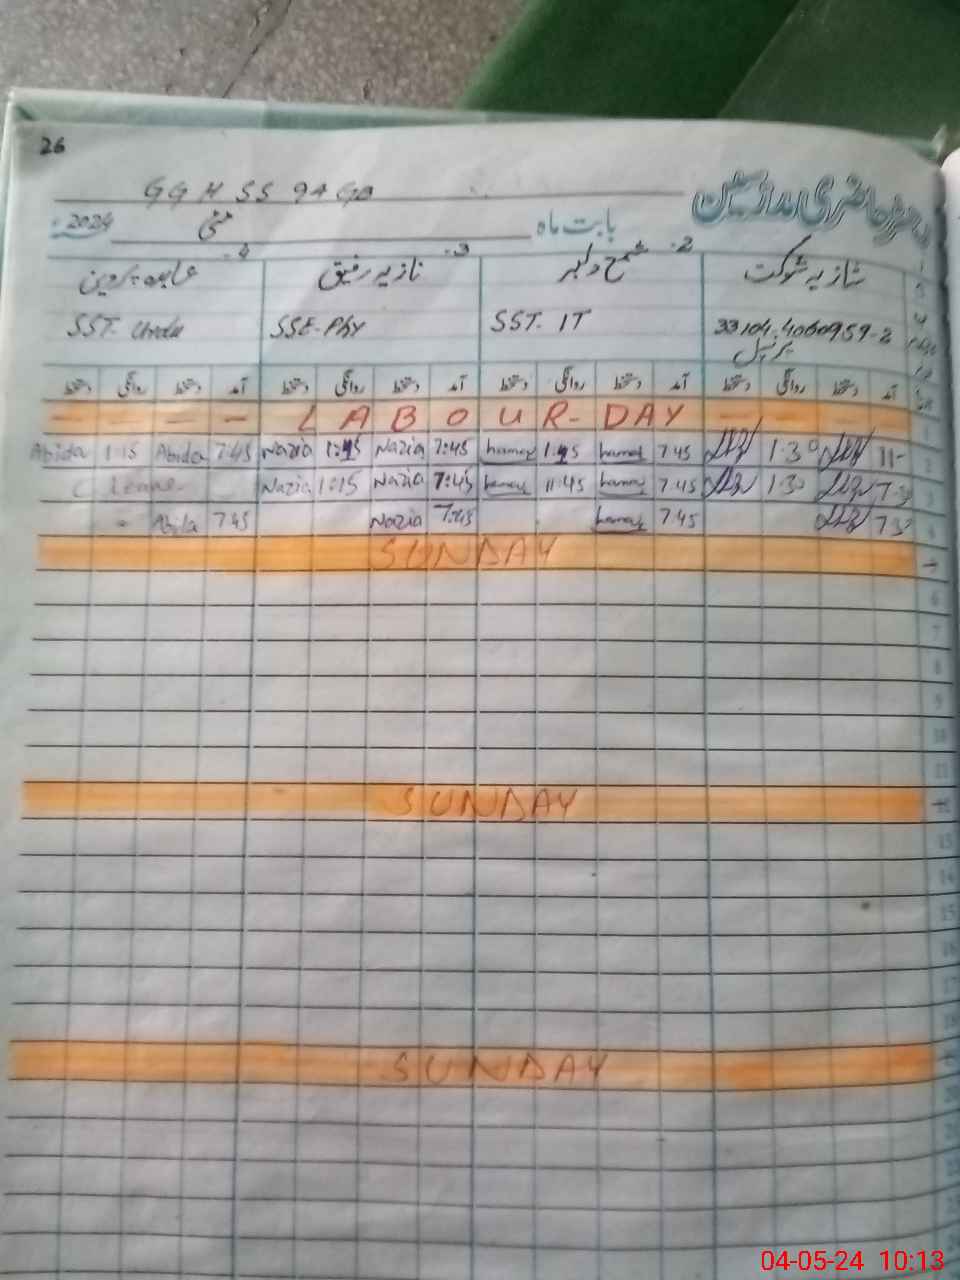 26
GGHSS 94 GB
رجسٹر حاضری مدرسین
2024ء مئی بابت ماہ
4. عابدہ پروین 3. نازیہ رفیق 2. شمع دلبر شازیہ شوکت
SST. Urdu SSE-Phy SST. IT 33104-4060959-2
پرنسپل
دستخط روانگی دستخط آمد دستخط روانگی دستخط آمد دستخط روانگی دستخط آمد دستخط روانگی دستخط آمد
- - - - LABOUR-DAY - - - - 1
Abida 1:15 Abida 7:45 Nazia Nazia 7:45 7:45 1:30 11- 2
Leave Nazia 1:15 Nazia 7:45 11:45 7:45 1:30 3
Abida 7:45 Nazia 7:45 7:45 4
SUNDAY
6
7
8
9
10
11
SUNDAY
13
14
15
16
17
18
SUNDAY
20
04-05-24 10:13